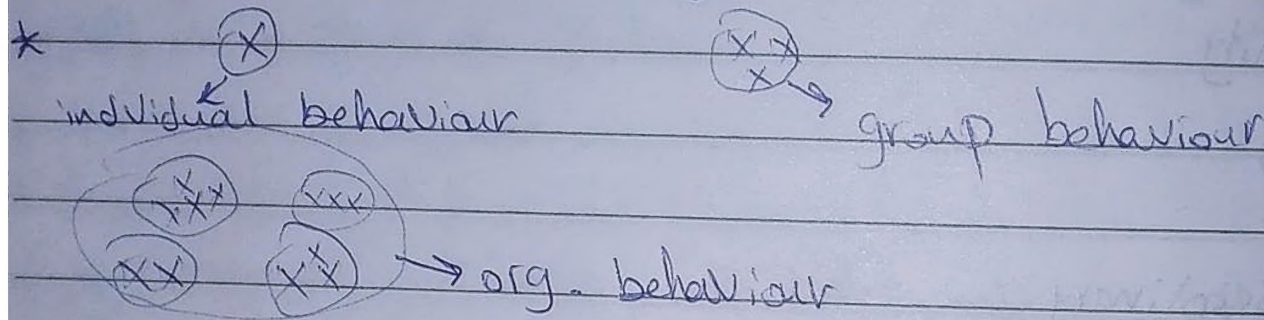 * X X X X
indvidual behaviour group behaviour
X X X X X X X
X X X X X → org. behaviour